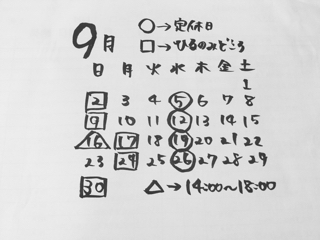 9月
○→定休日
□→ひるのみどころ
日 月 火 水 木 金 土
1
2 3 4 5 6 7 8
9 10 11 12 13 14 15
16 17 18 19 20 21 22
23 24 25 26 27 28 29
30
△→14:00〜18:00